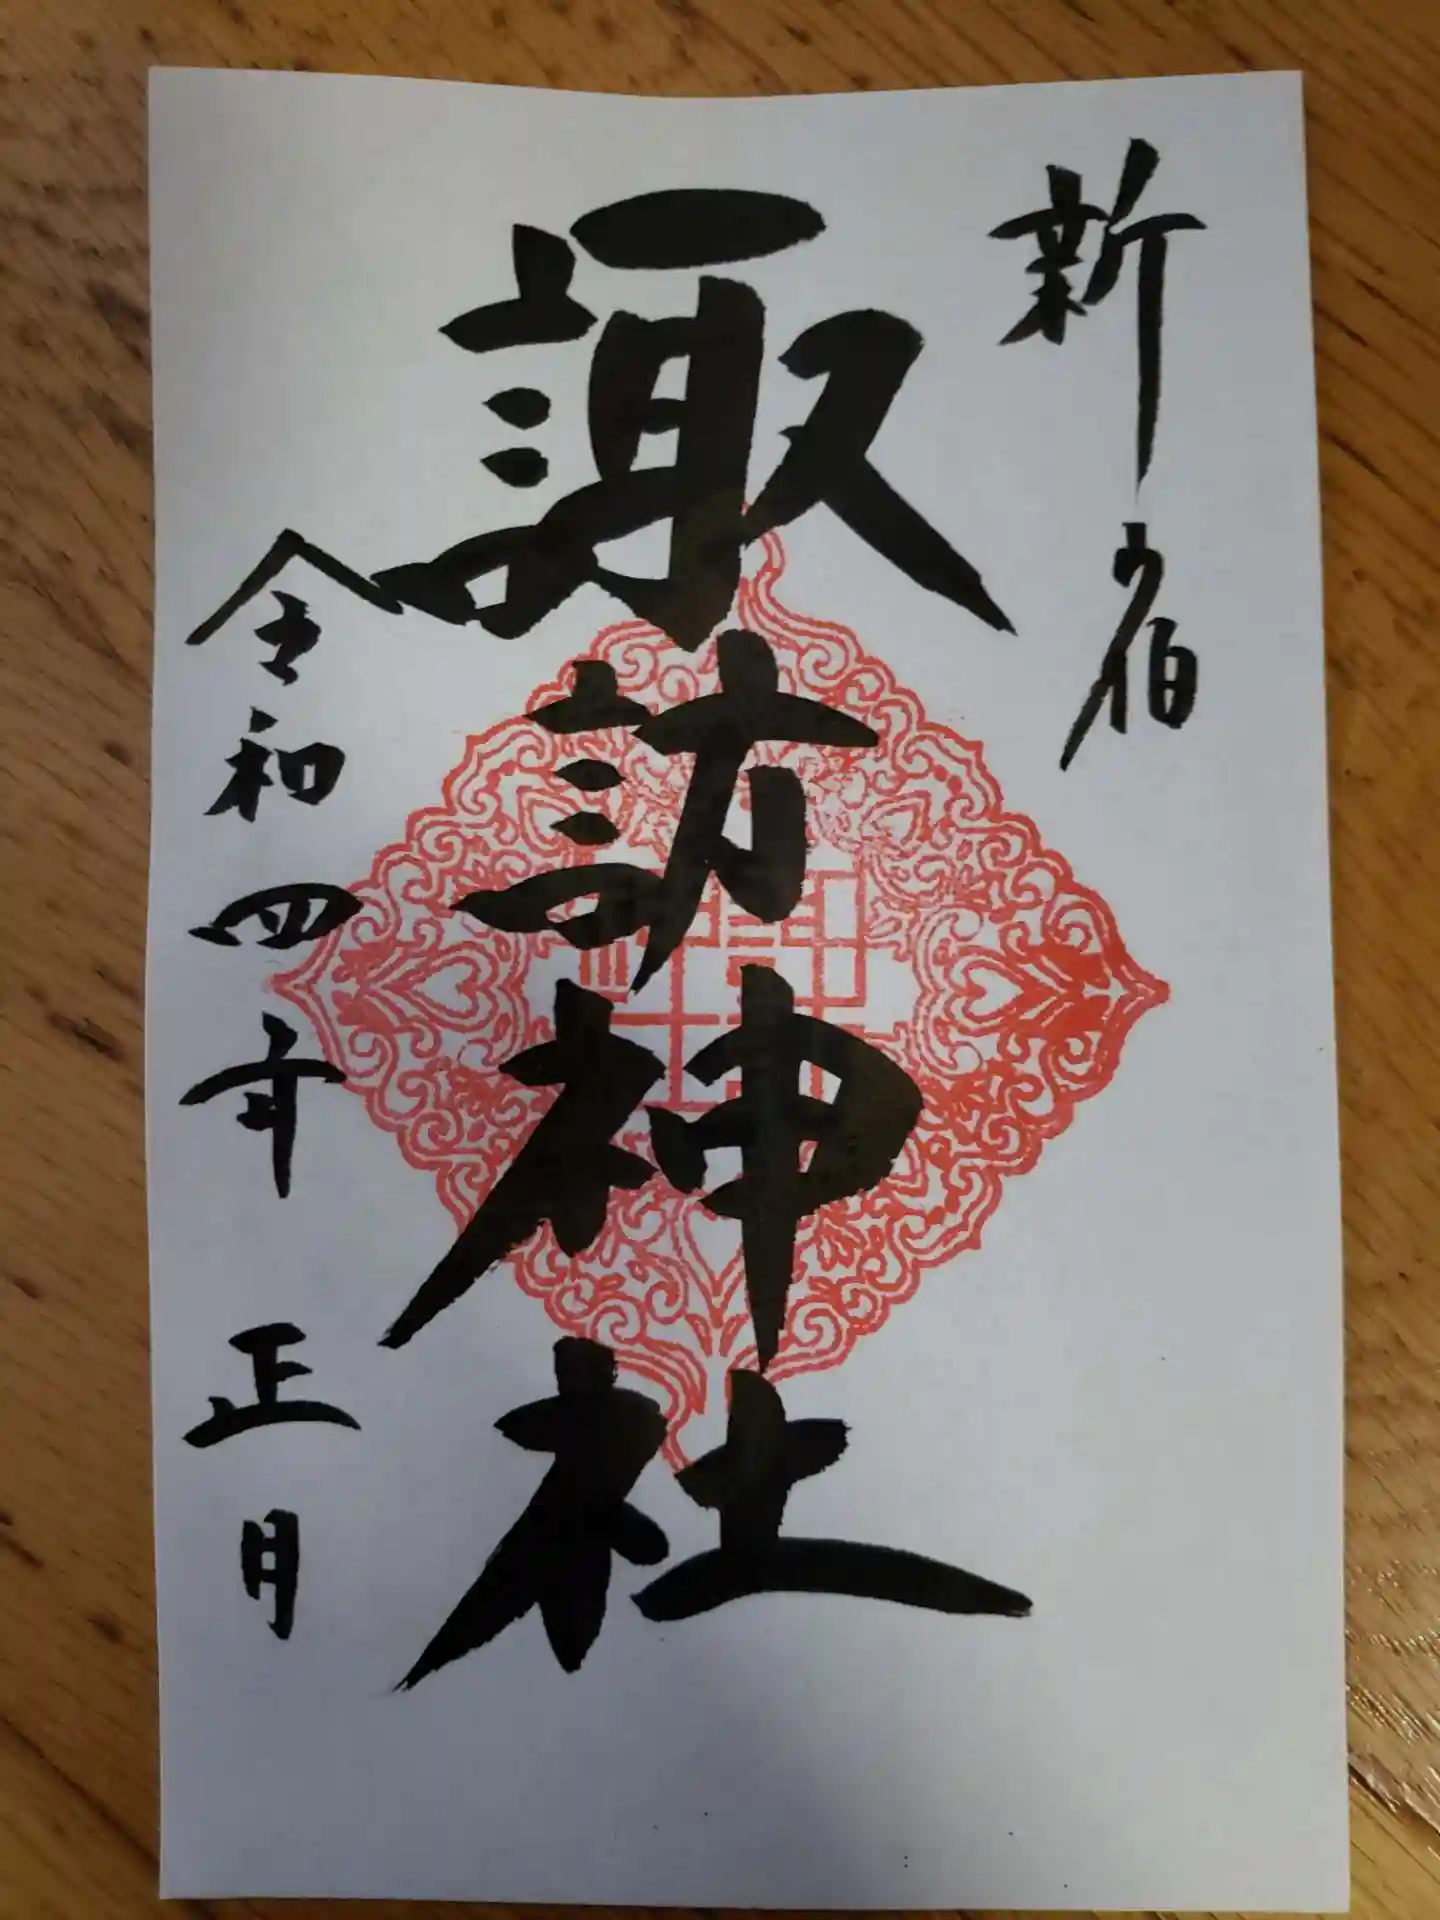 新宿
諏訪神社
令和四年 正月